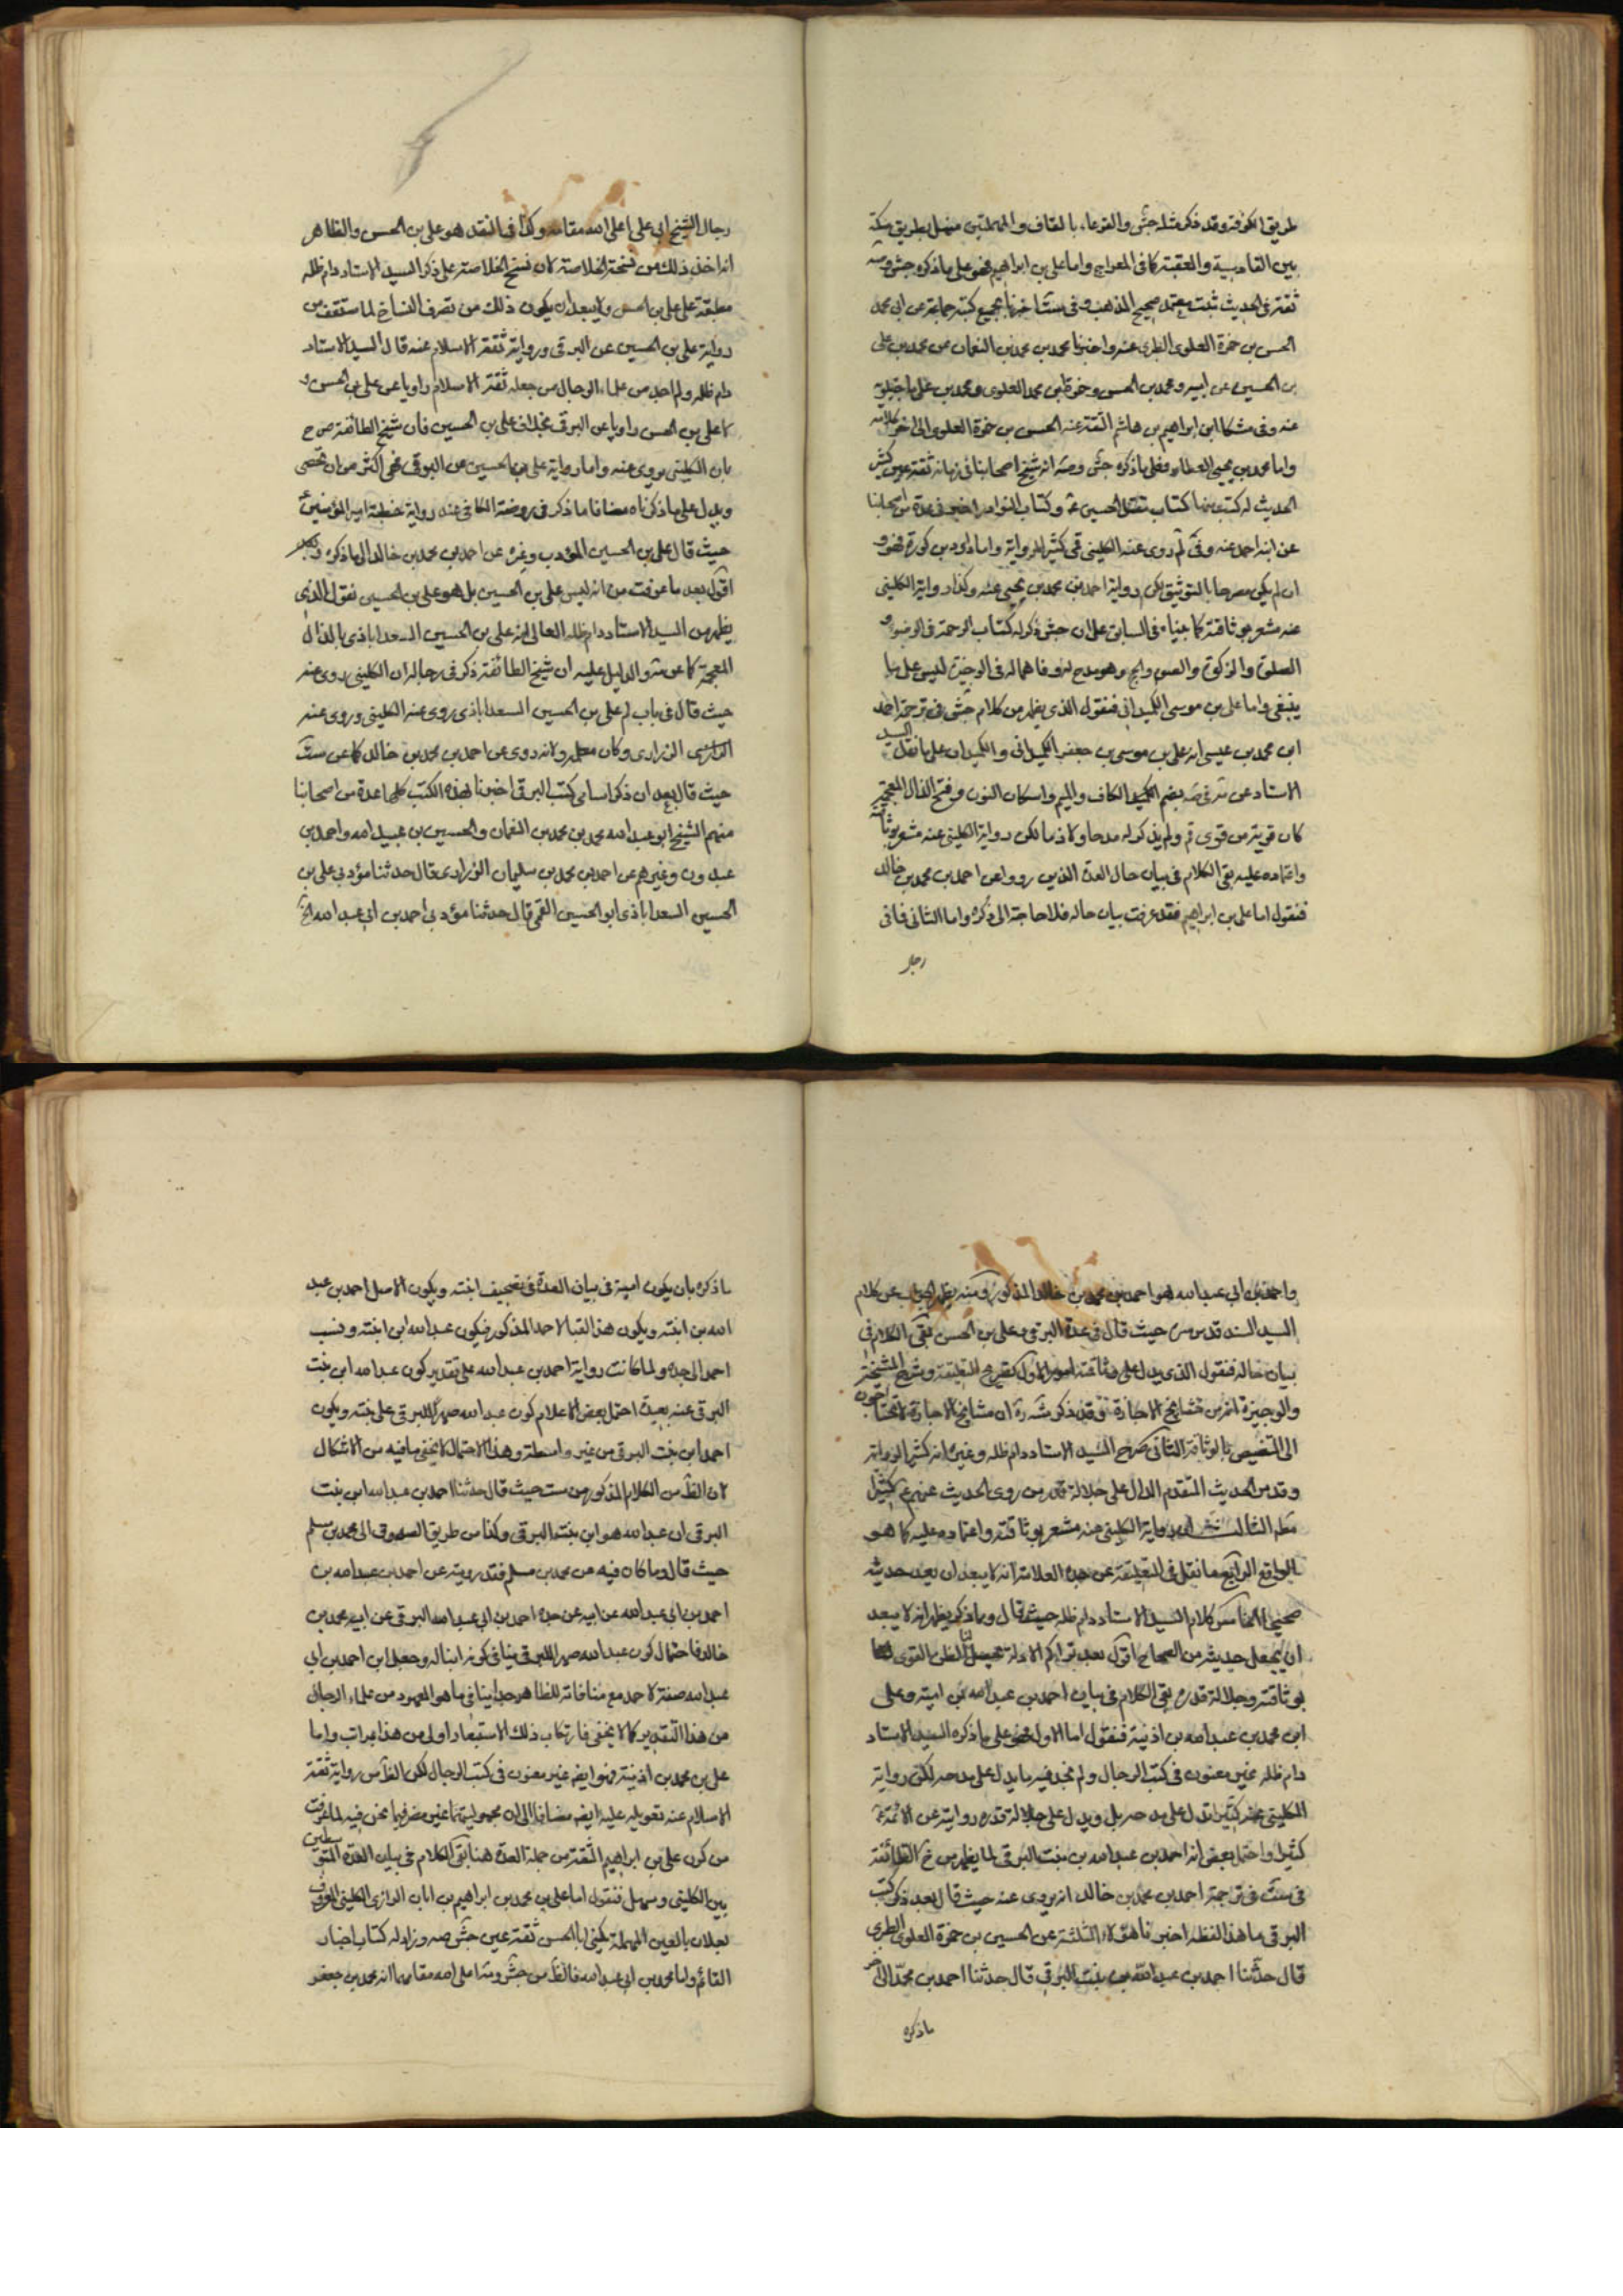 طريق الكوفة وقد ذكر مثله جش والقرعاء بالقاف والمهملتين منهل بطريق مكة
بين القادسية والعقبة كما فى المعراج واما على بن ابراهيم فهو على ما ذكره جش وصه
ثقة فى الحديث ثبت معتمد صحيح المذهب وفى ست اخبرنا بجميع كتبه جماعة عن ابى محمد
الحسن بن حمزة العلوى الطبرى عنه واخبرنا محمد بن محمد بن النعمان عن محمد بن على
بن الحسين عن ابيه ومحمد بن الحسن وحمزة بن محمد العلوى ومحمد بن على ماجيلويه
عنه وفى مشكا ابن ابراهيم بن هاشم الثقة عنه الحسن بن حمزة العلوى الى اخر كلامه
واما محمد بن يحيى العطار فعلى ما ذكره جش وصه انه شيخ اصحابنا فى زمانه ثقة عين كثير
الحديث له كتب منها كتاب مقتل الحسين ع وكتاب النوادر اخبرنى عدة من اصحابنا
عن ابنه احمد عنه وفى لم روى عنه الكلينى قمى كثير الرواية واما داود بن كورة فهو و
ان لم يكن مصرحا بالتوثيق لكن رواية احمد بن محمد بن يحيى عنه وكذا رواية الكلينى
عنه مشعر بوثاقته كما جيناه فى السابق على ان جش ذكر له كتاب الرحمة فى الوضوء و
الصلوة والزكوة والصوم والحج وهو مدح له فاهماله فى الوجيزة ليس على ما
ينبغى واما على بن موسى الكميدانى فنقول الذى يظهر من كلام جش فى ترجمة احمد
ابن محمد بن عيسى انه على بن موسى بن جعفر الكميدانى والكميدان على ما نقل السيد
الاستاد عن بضم الكاف والميم واسكان النون وفتح الذال المعجمة
كان قرية من قرى قم ولم يذكر له مدحا ولا ذما لكن رواية الكلينى عنه مشعر بوثاقته
واعتماده عليه بقى الكلام فى بيان حال العدة الذين رووا عن احمد بن محمد بن خالد
فنقول اما على بن ابراهيم فقد عرفت بيان حاله فلا حاجة الى ذكره واما الثانى فانى
رجال
رجال الشيخ ابى على اعلى الله مقامه وكذا فى النقد هو على بن الحسن والظاهر
انه اخذ ذلك من نسخة الخلاصة كان نسخ الخلاصة على ذكر السيد الاستاد دام ظله
مطبقة على على بن الحسن ولا يبعد ان يكون ذلك من تصرف النساخ لما ستقف من
رواية على بن الحسين عن البرقى ورواية ثقة الاسلام عنه قال السيد الاستاد
دام ظله ولم اجد من علماء الرجال من جعله ثقة الاسلام راويا عن على بن الحسن و
لا على بن الحسن راويا عن البرقى بخلاف على بن الحسين فان شيخ الطائفة صرح
بان الكلينى يروى عنه واما رواية على بن الحسين عن البرقى فهى اكثر من ان تحصى
ويدل على ما ذكرناه مضافا ما ذكر فى روضة الكافى عند رواية خطبة امير المؤمنين ع
حيث قال على بن الحسين المؤدب وغيره عن احمد بن محمد بن خالد الى ما ذكره
اقول بعد ما عرفت من انه ليس على بن الحسين بل هو على بن الحسين نقول الذى
يظهر من السيد الاستاد دام ظله العالى انه على بن الحسين السعداباذى بالذال
المعجمة كما عن والدليل عليه ان شيخ الطائفة ذكر فى رجاله ان الكلينى روى عنه
حيث قال فى باب لم على بن الحسين السعداباذى روى عنه الكلينى وروى عنه
الزرارى وكان معلمه ولانه روى عن احمد بن محمد بن خالد كما عن ست
حيث قال بعد ان ذكر اسامى كتب البرقى اخبرنا بهذه الكتب كلها عدة من اصحابنا
منهم الشيخ ابو عبد الله محمد بن محمد بن النعمان والحسين بن عبيد الله واحمد بن
عبدون وغيرهم عن احمد بن محمد بن سليمان الزرارى قال حدثنا مؤدبى على بن
الحسين السعداباذى ابو الحسين القمى قال حدثنا مؤدبى احمد بن ابى عبد الله الخ
واحمد بن ابى عبد الله هو احمد بن محمد بن خالد المذكور ومنه يظهر الجواب عن كلام
السيد السند قدس سره حيث قال فى عدة البرقى وعلى بن الحسن بقى الكلام فى
بيان حاله فنقول الذى يدل على وثاقته امور الاول تصريح التعليقة وشرح المشيخة
والوجيزة انه من مشايخ الاجازة وقد ذكر شه ره ان مشايخ الاجازة لا يحتاجون
الى التنصيص بالوثاقة الثانى صرح السيد الاستاد دام ظله وغيره انه كثير الرواية
وقد مر الحديث المتقدم الدال على جلالة قدر من روى الحديث عنهم ع كثيرا
الثالث رواية الكلينى عنه مشعر بوثاقته واعتماده عليه كما هو
الواقع الرابع ما نقل فى التعليقة عن جده العلامة انه لا يبعد ان يعد حديثه
صحيحا الخامس كلام السيد الاستاد دام ظله حيث قال ومما ذكر يظهر انه لا يبعد
ان يجعل حديثه من الصحاح اقول بعد تراكم الادلة تحصيل الظن القوى
بوثاقته وجلالة قدره بقى الكلام فى بيان احمد بن عبد الله بن امية وعلى
ابن محمد بن عبد الله بن اذينة فنقول اما الاول فهو على ما ذكره السيد الاستاد
دام ظله غير معنون فى كتب الرجال ولم نجد فيه ما يدل على مدحه لكن رواية
الكلينى عنه كثيرا تدل على مدحه بل ويدل على جلالة قدره روايته عن الائمة ع
كثيرا واحتمل بعض انه احمد بن عبد الله بن بنت البرقى لما يظهر من شيخ الطائفة
فى ست فى ترجمة احمد بن محمد بن خالد انه يروى عنه حيث قال بعد ذكر كتب
البرقى ما هذا لفظه اخبرنا هؤلاء الثلثة عن الحسن بن حمزة العلوى الطبرى
قال حدثنا احمد بن عبد الله بن بنت البرقى قال حدثنا احمد بن محمد الى اخر
ما ذكره
ما ذكره بان يكون امية فى بيان العدة فى تصحيف ابنته ويكون الاصل احمد بن عبد
الله بن ابنته ويكون هذا لقبا لاحمد المذكور فيكون عبد الله ابن ابنته ونسب
احمد الى جده ولما كانت رواية احمد بن عبد الله على تقدير كون عبد الله ابن بنت
البرقى عنه بعيدة احتمل بعض الاعلام كون عبد الله صهرا للبرقى على بنته ويكون
احمد ابن بنت البرقى من غير واسطة وهذا الاحتمال لا يخفى ما فيه من الاشكال
لان الظ من الكلام المذكور من ست حيث قال حدثنا احمد بن عبد الله ابن بنت
البرقى ان عبد الله هو ابن بنت البرقى وكذا من طريق الصدوق الى محمد بن مسلم
حيث قال وما كان فيه عن محمد بن مسلم فقد رويته عن احمد بن عبد الله بن
احمد بن ابى عبد الله عن ابيه عن جده احمد بن ابى عبد الله البرقى عن ابيه محمد بن
خالد فاحتمال كون عبد الله صهرا للبرقى ينافى كونه ابنا له وجعل ابن احمد بن ابى
عبد الله صفة لاحمد مع منافاته للظاهر جدا ينافى ما هو المعهود من علماء الرجال
من هذا التقدير كما لا يخفى فارتكاب ذلك الاستبعاد اولى من هذا بمراتب واما
على بن محمد بن اذينة فهو ايضا غير معنون فى كتب الرجال لكن الظ من رواية ثقة
الاسلام عنه تعويله عليه ايضا مضافا الى ان مجهوليتهما غير مضر فيما نحن فيه لما عرفت
من كون على بن ابراهيم الثقة من جملة العدة هنا بقى الكلام فى بيان العدة المتوسطين
بين الكلينى وسهل فنقول اما على بن محمد بن ابراهيم بن ابان الرازى الكلينى المعروف
بعلان بالعين المهملة يكنى ابا الحسن ثقة عين جش صه وزاد له كتاب اخبار
القائم واما محمد بن ابى عبد الله فالظ من جش وصه اعلى الله مقامهما انه محمد بن جعفر